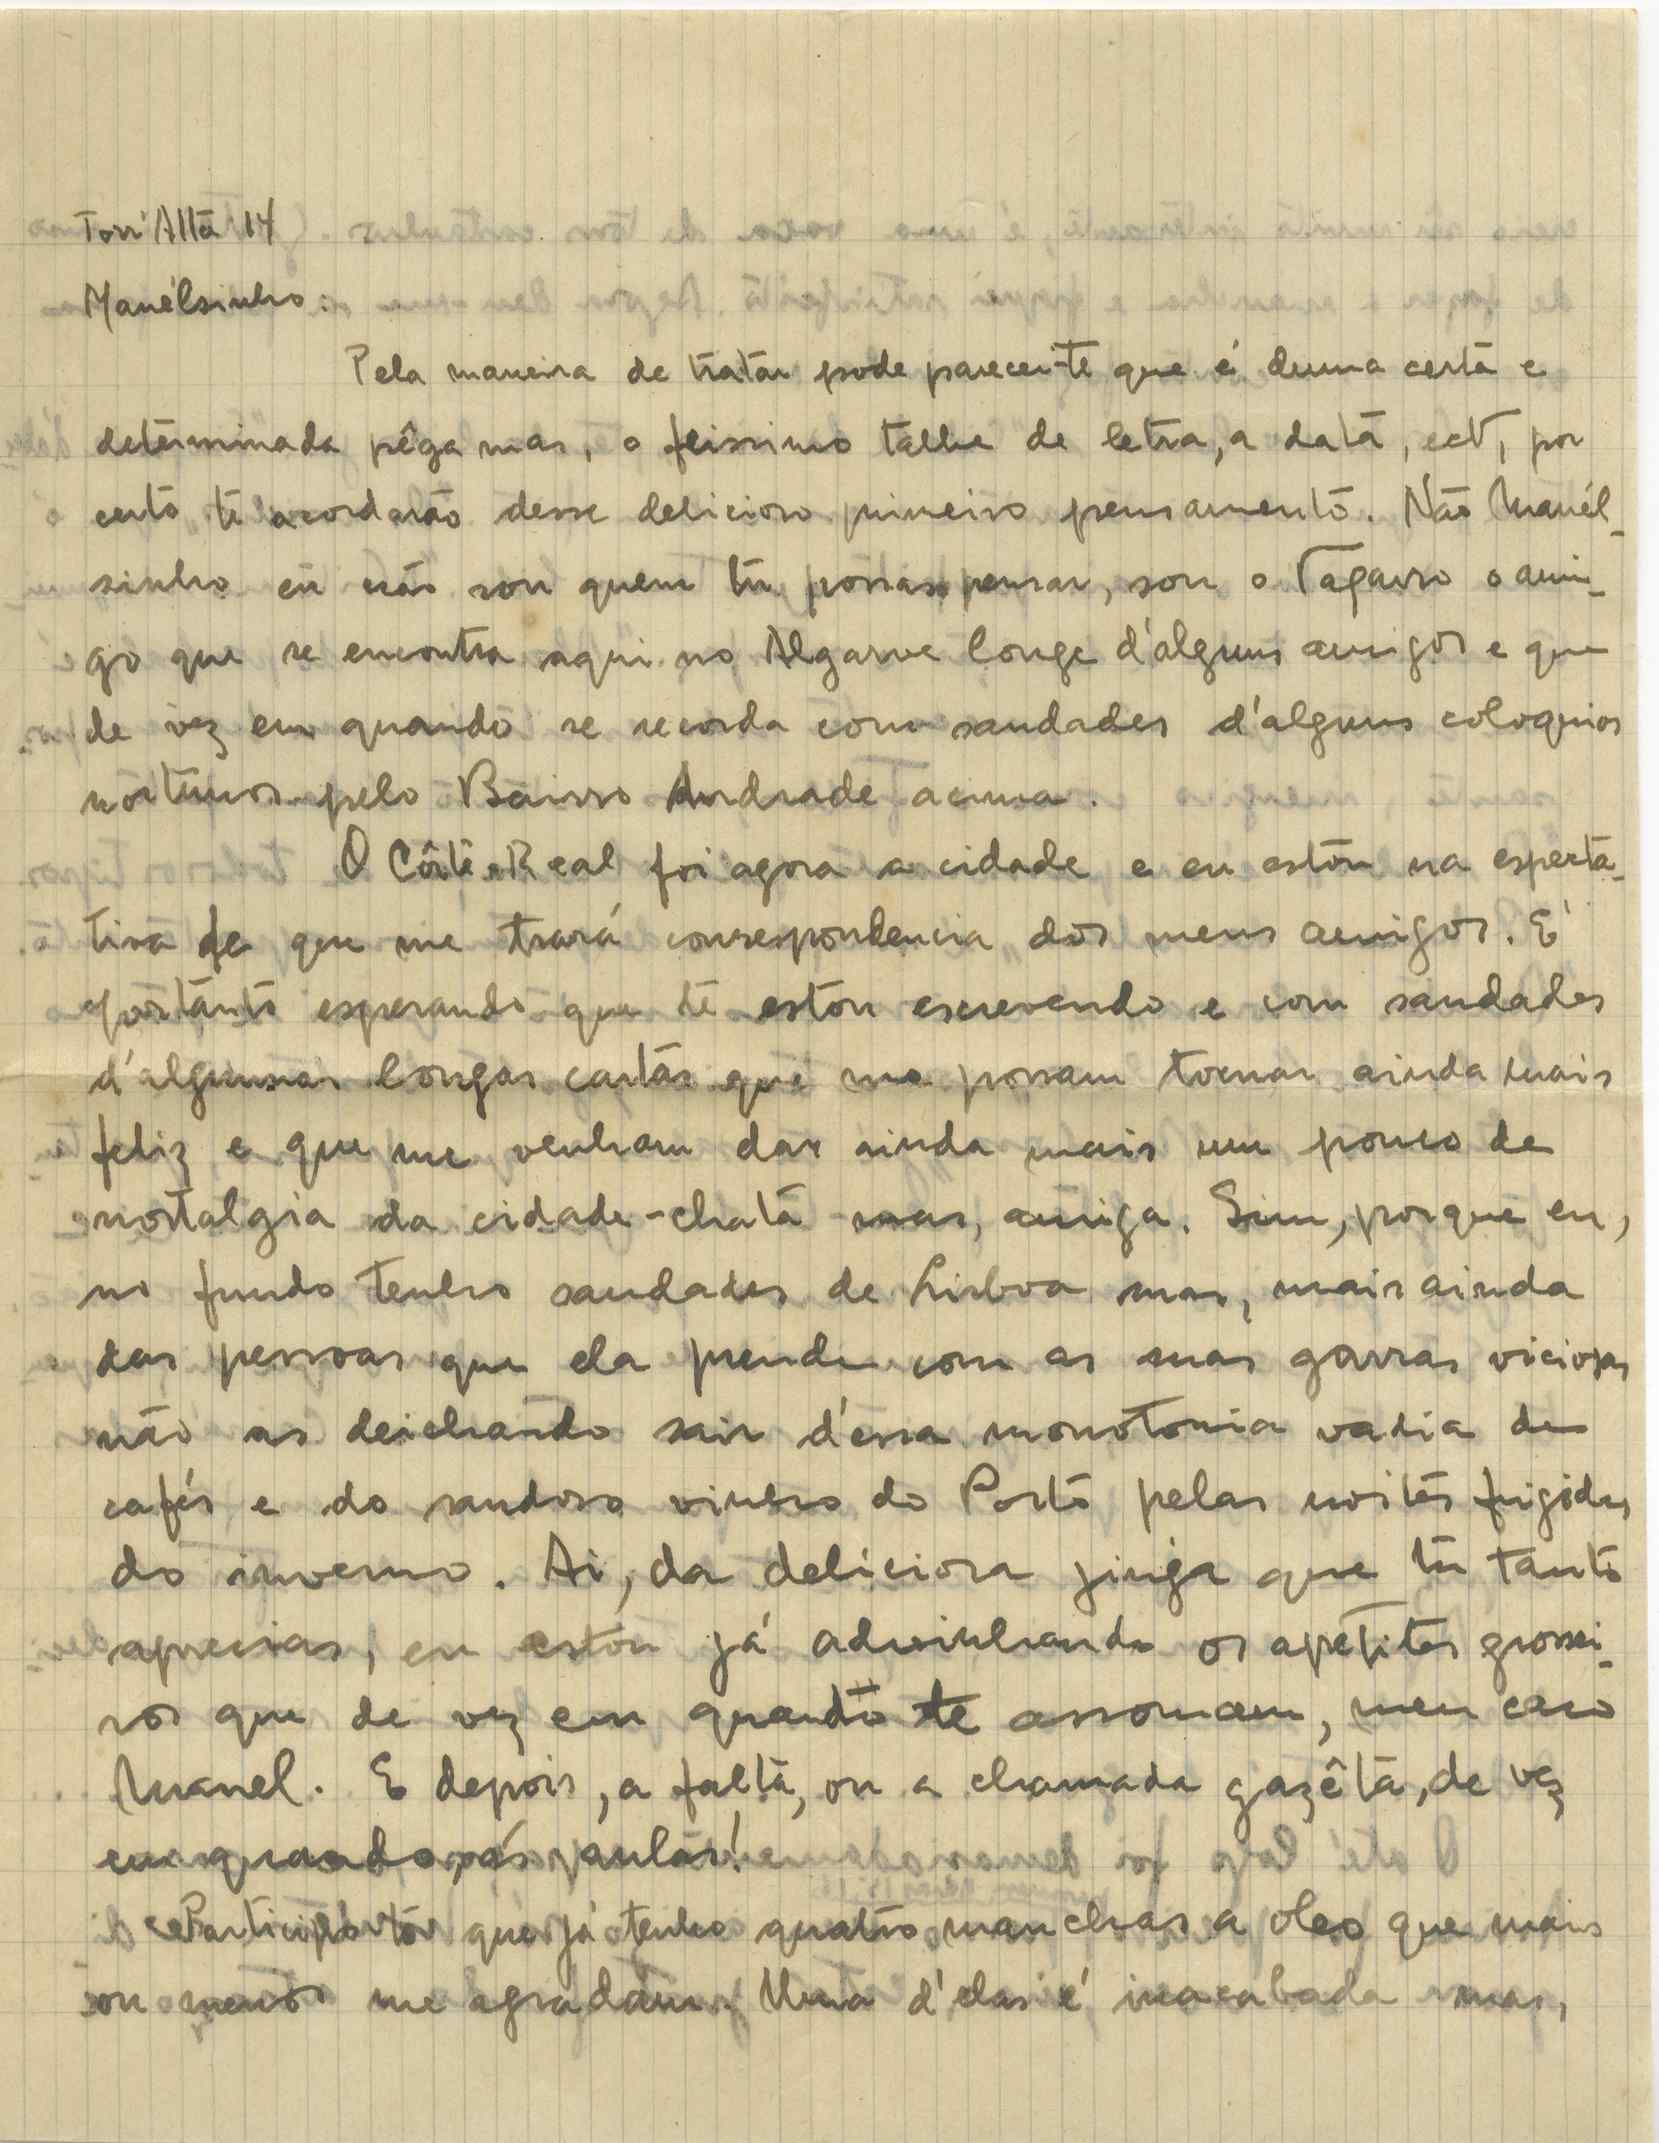 Torr'Alta 14
Manélsinho:
Pela maneira de tratar pode parecer-te que é duma certa e
determinada pêga mas, o feissimo talhe de letra, a data, ect, por
certo te acordarão desse delicioso primeiro pensamento. Não Manél-
sinho eu não sou quem tu possas pensar, sou o Tagarro o ami-
go que se encontra aqui no Algarve longe d'alguns amigos e que
de vez em quando se recorda com saudades d'alguns coloquios
noiturnos pelo Bairro Andrade acima.
O Côrte-Real foi agora a cidade e eu estou na esperta-
tiva de que me trará correspondencia dos meus amigos. É
portanto esperando que te estou escrevendo e com saudades
d'algumas longas cartas que me possam tornar ainda mais
feliz e que me venham dar ainda mais um pouco de
nostalgia da cidade-chata mas, amiga. Sim, porque eu,
no fundo tenho saudades de Lisboa mas, mais ainda
das pessoas que ela prende com as suas garras viciosas
não as deichando sair d'essa monotonia vadia de
cafés e do saudoso vinho do Porto pelas noites frigidas
do inverno. Ai, da deliciosa ginja que tu tanto
aprecias, eu estou já adivinhando os apetites grossei-
ros que de vez em quando te assomam, meu caro
Manel. E depois, a falta, ou a chamada gazêta, de vez
em quando, ás aulas!
Participo-te que já tenho quatro manchas a oleo que mais
ou menos me agradam. Uma d'elas é inacabada mas,